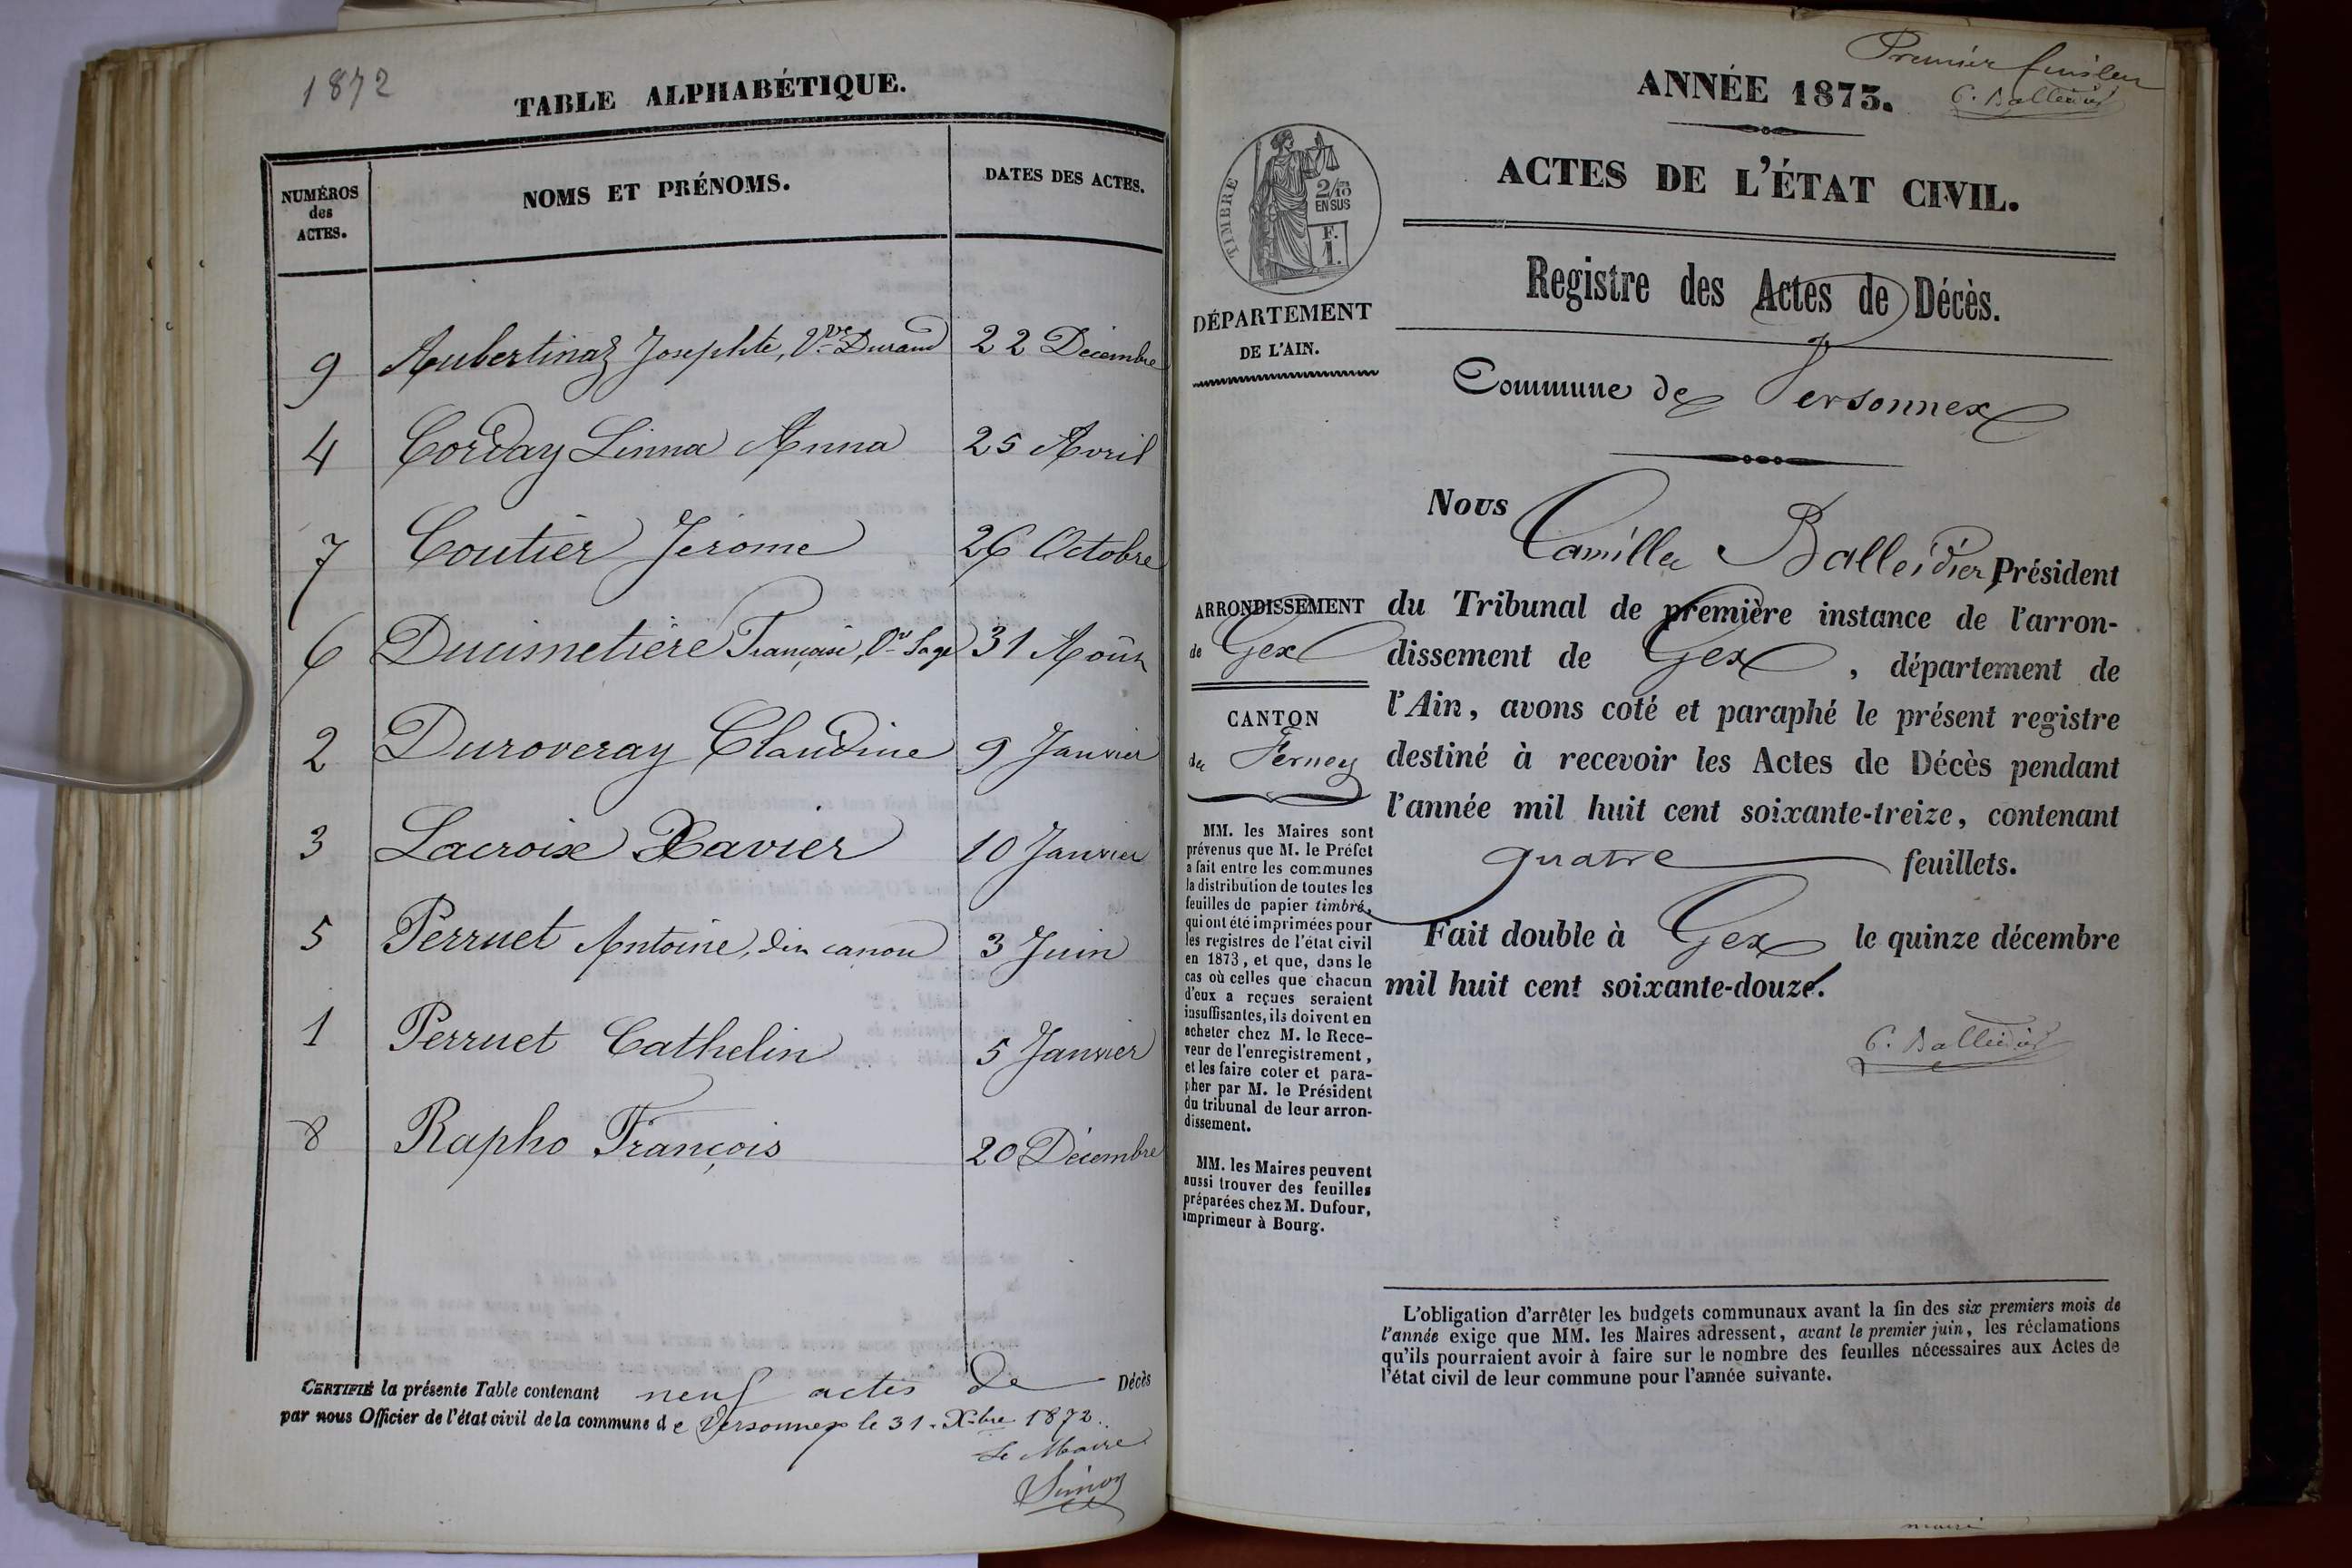 1872
TABLE ALPHABÉTIQUE.
NUMÉROS
des
ACTES.
NOMS ET PRÉNOMS.
DATES DES ACTES.
9 Aubertinaz Josephte, Vve Durand 22 Décembre
4 Corday Linna Anna 25 Avril
7 Coutier Jérome 26 Octobre
6 Ducimetière Françoise, Vve Sage 31 Août
2 Duroveray Claudine 9 Janvier
3 Lacroix Xavier 10 Janvier
5 Perruet Antoine, din canon 3 Juin
1 Perruet Cathelin 5 Janvier
8 Rapho François 20 Décembre
CERTIFIÉ la présente Table contenant neuf actes de Décès
par nous Officier de l'état civil de la commune de Versonnex le 31 Xbre 1872.
Le Maire
Simon
Premier
C. Balleidier
ANNÉE 1873.
ACTES DE L'ÉTAT CIVIL.
TIMBRE
2/10
EN SUS
F.
1.
DÉPARTEMENT
DE L'AIN.
Registre des Actes de Décès.
Commune de Versonnex
Nous Camille Balleidier, Président
du Tribunal de première instance de l'arron-
dissement de Gex, département de
l'Ain, avons coté et paraphé le présent registre
destiné à recevoir les Actes de Décès pendant
l'année mil huit cent soixante-treize, contenant
quatre feuillets.
Fait double à Gex le quinze décembre
mil huit cent soixante-douze.
C. Balleidier
ARRONDISSEMENT
de Gex
CANTON
de Ferney
MM. les Maires sont
prévenus que M. le Préfet
a fait entre les communes
la distribution de toutes les
feuilles de papier timbré,
qui ont été imprimées pour
les registres de l'état civil
en 1873, et que, dans le
cas où celles que chacun
d'eux a reçues seraient
insuffisantes, ils doivent en
acheter chez M. le Rece-
veur de l'enregistrement,
et les faire coter et para-
pher par M. le Président
du tribunal de leur arron-
dissement.
MM. les Maires peuvent
aussi trouver des feuilles
préparées chez M. Dufour,
imprimeur à Bourg.
L'obligation d'arrêter les budgets communaux avant la fin des six premiers mois de
l'année exige que MM. les Maires adressent, avant le premier juin, les réclamations
qu'ils pourraient avoir à faire sur le nombre des feuilles nécessaires aux Actes de
l'état civil de leur commune pour l'année suivante.